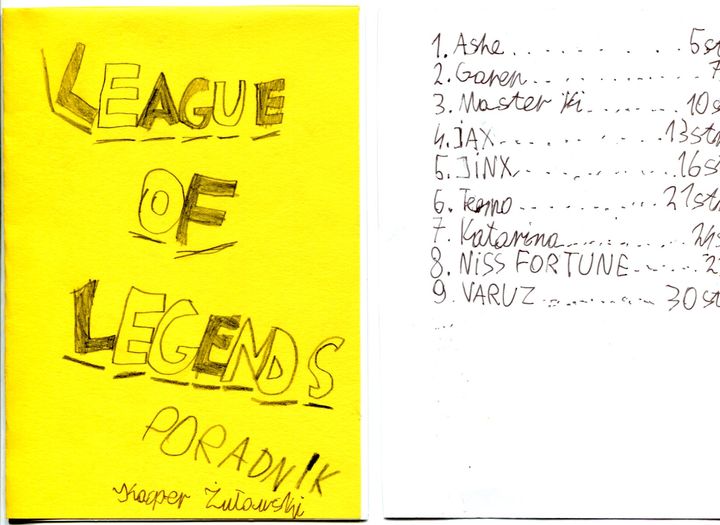 LEAGUE
OF
LEGENDS
PORADNIK
Kacper Żuławski
1. Ashe . . . . . . . . . 5st
2. Garen . . . . . . . . .
3. Master Yi . . . . . . . 10s
4. JAX . . . . . . . . . 13str
5. JiNX . . . . . . . . . 16s
6. Teemo . . . . . . . . . 21str
7. Katarina . . . . . . .
8. NiSS FORTUNE . . . . . .
9. VARUZ . . . . . . . . . 30st